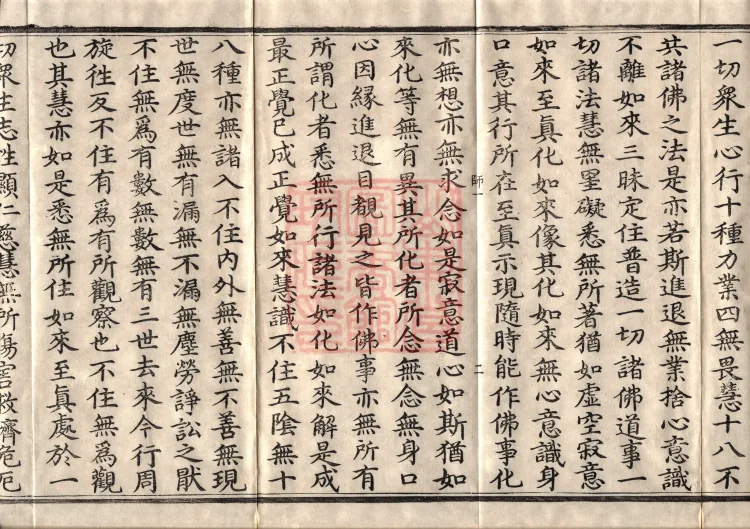 一切衆生心行十種力業四無畏慧十八不
共諸佛之法是亦若斯進退無業捨心意識
不離如來三昧定住普造一切諸佛道事一
切諸法慧無罣礙悉無所著猶如虛空寂意
如來至眞化如來像其化如來無心意識身
口意其行所在至眞示現隨時能作佛事化
師一 二
亦無想亦無求念如是寂意道心如斯猶如
來化等無有異其所化者所念無念無身口
心因緣進退目覩見之皆作佛事亦無所有
所謂化者悉無所行諸法如化如來解是成
最正覺已成正覺如來慧識不住五陰無十
八種亦無諸入不住内外無善無不善無現
世無度世無有漏無不漏無塵勞諍訟之猒
不住無爲有數無數無有三世去來今行周
旋往反不住有爲有所觀察也不住無爲觀
也其慧亦如是悉無所住如來至眞處於一
切衆生志性顯仁慈慧無所傷害救濟危厄